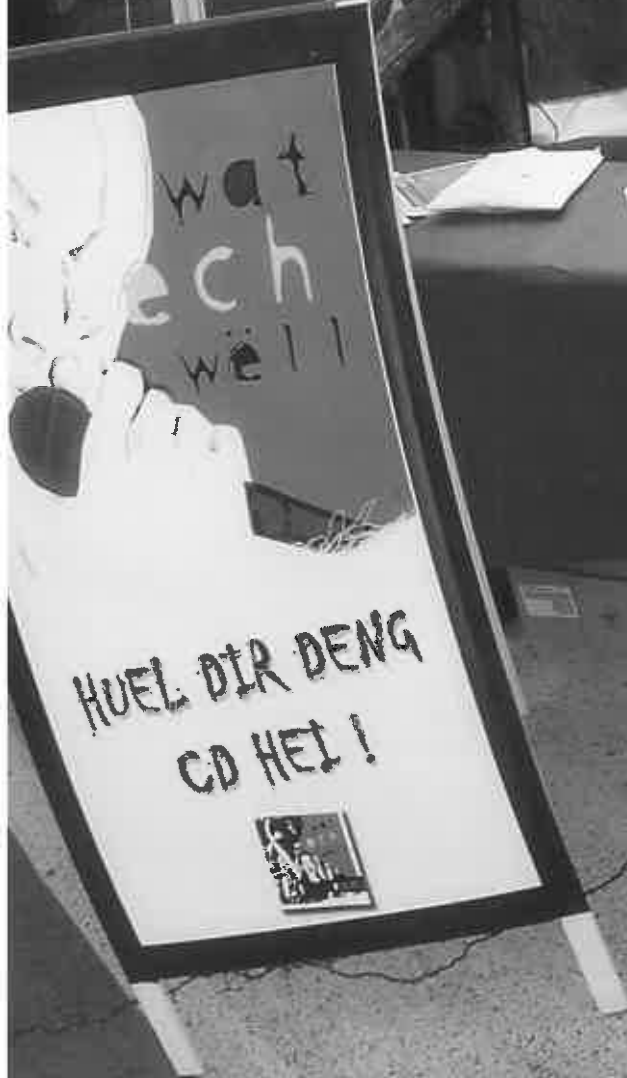 wat
ech
wëll
HUEL DIR DENG
CD HEI !